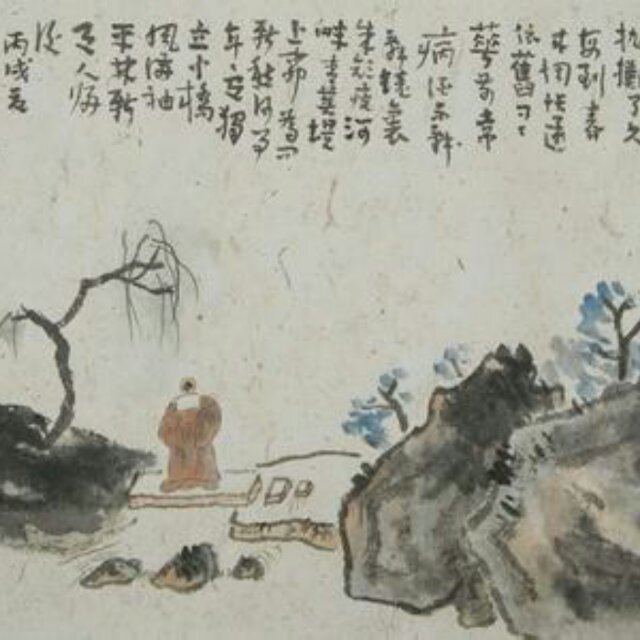 每到春
來惆悵還
依舊日日
華前常
病酒不辭
鏡裏
朱顏瘦河
畔青蕪堤
上柳爲問
新愁何事
年年有獨
立小橋
風滿袖
平林新
月人歸
後
丙戌